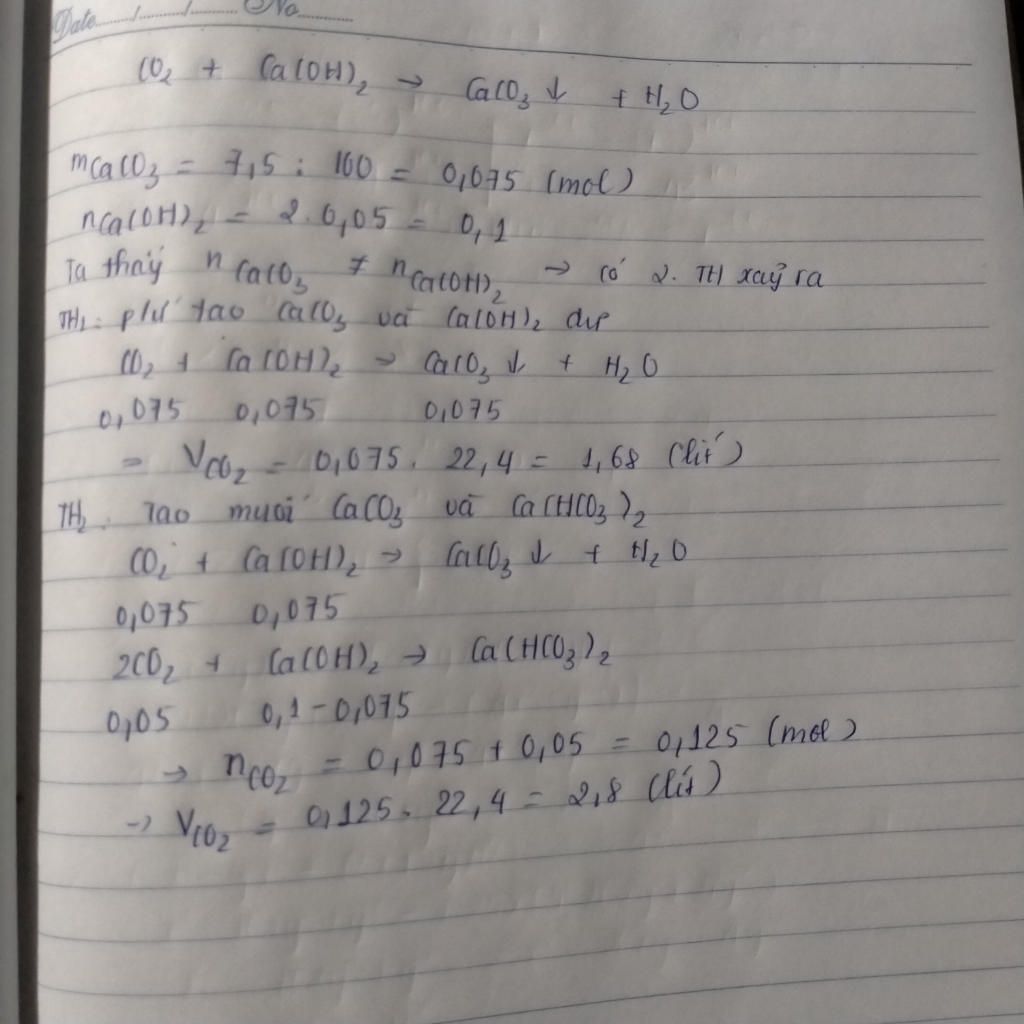 Date....../....../......... No...........
CO₂ + Ca(OH)₂ → CaCO₃ ↓ + H₂O
mCaCO₃ = 7,5 : 100 = 0,075 (mol)
nCa(OH)₂ = 2. 0,05 = 0,1
Ta thấy nCaCO₃ ≠ nCa(OH)₂ → có 2. TH xảy ra
TH₁: pứ tạo CaCO₃ và Ca(OH)₂ dư
CO₂ + Ca(OH)₂ → CaCO₃ ↓ + H₂O
0,075 0,075 0,075
= VCO₂ = 0,075. 22,4 = 1,68 (lít)
TH₂: Tạo muối CaCO₃ và Ca(HCO₃)₂
CO₂ + Ca(OH)₂ → CaCO₃ ↓ + H₂O
0,075 0,075
2CO₂ + Ca(OH)₂ → Ca(HCO₃)₂
0,05 0,1 - 0,075
→ nCO₂ = 0,075 + 0,05 = 0,125 (mol)
→ VCO₂ = 0,125. 22,4 = 2,8 (lít)